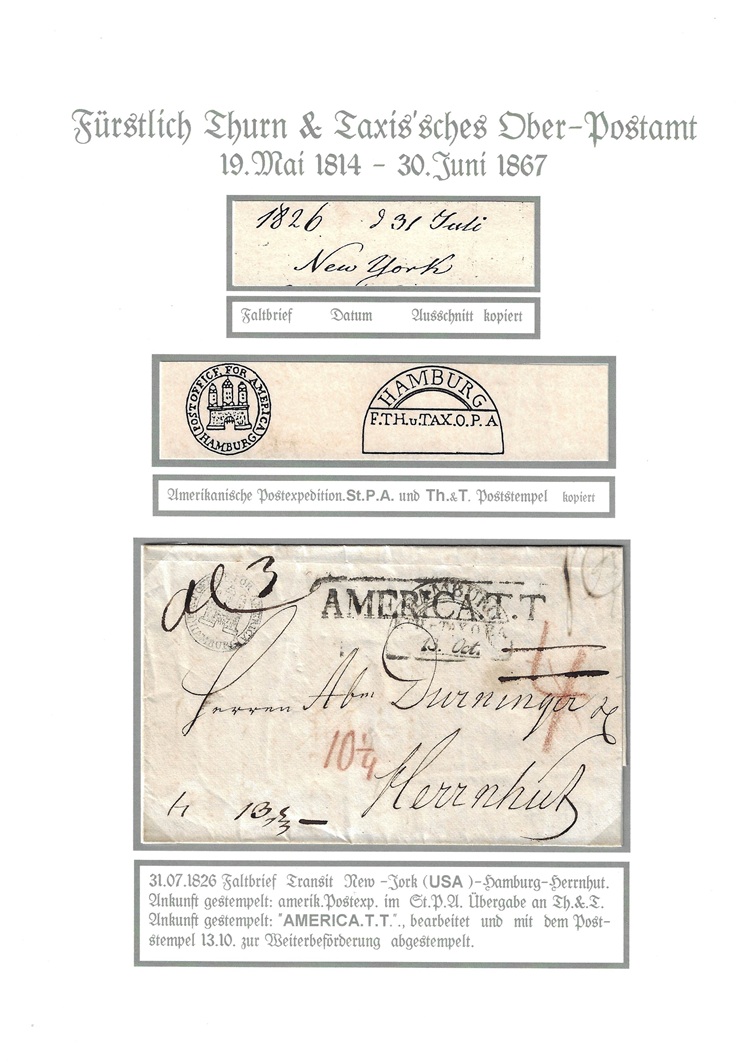 Fürstlich Thurn & Taxis'sches Ober-Postamt
19.Mai 1814 - 30.Juni 1867
1826 d 31 Juli
New York
Faltbrief Datum Ausschnitt kopiert
POST OFFICE FOR AMERICA
HAMBURG
HAMBURG
F.TH.u.TAX.O.P.A
Amerikanische Postexpedition.St.P.A. und Th.&T. Poststempel kopiert
3
AMERICA.T.T
13. Oct.
Herren Abr. Durninger &
10 1/4
Herrnhut
13
31.07.1826 Faltbrief Transit New -Jork (USA )-Hamburg-Herrnhut.
Ankunft gestempelt: amerik.Postexp. im St.P.A. Übergabe an Th.&T.
Ankunft gestempelt: "AMERICA.T.T."., bearbeitet und mit dem Post-
-stempel 13.10. zur Weiterbeförderung abgestempelt.